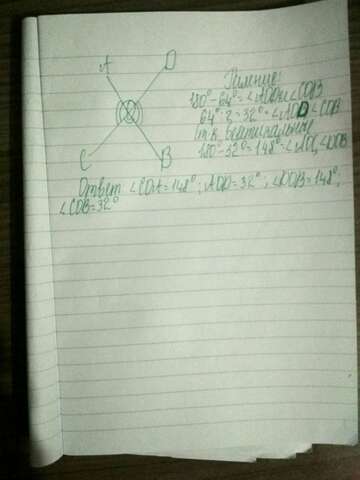 A D
Решение:
180°-64°=∠AOD и ∠COB
64°:2=32°=∠AOD ∠COB
т.к. вертикальные
180°-32°=148°=∠AOC, ∠DOB
C B
Ответ: ∠COA=148°; AOD=32°; ∠DOB=148°;
∠COB=32°